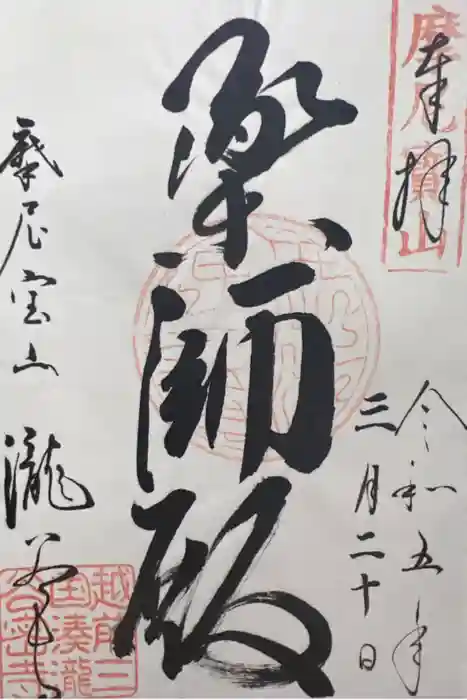 奉拝
摩尼寳山
令和五年
三月二十日
薬師殿
摩尼宝山
瀧谷寺
越前三
国湊瀧
谷密寺